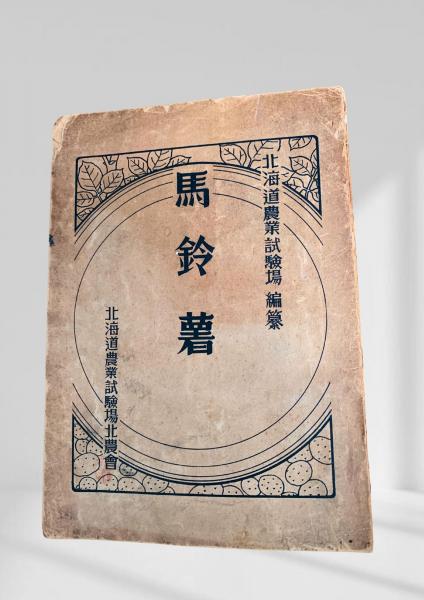 北海道農業試驗場 編纂
馬鈴薯
北海道農業試驗場北農會